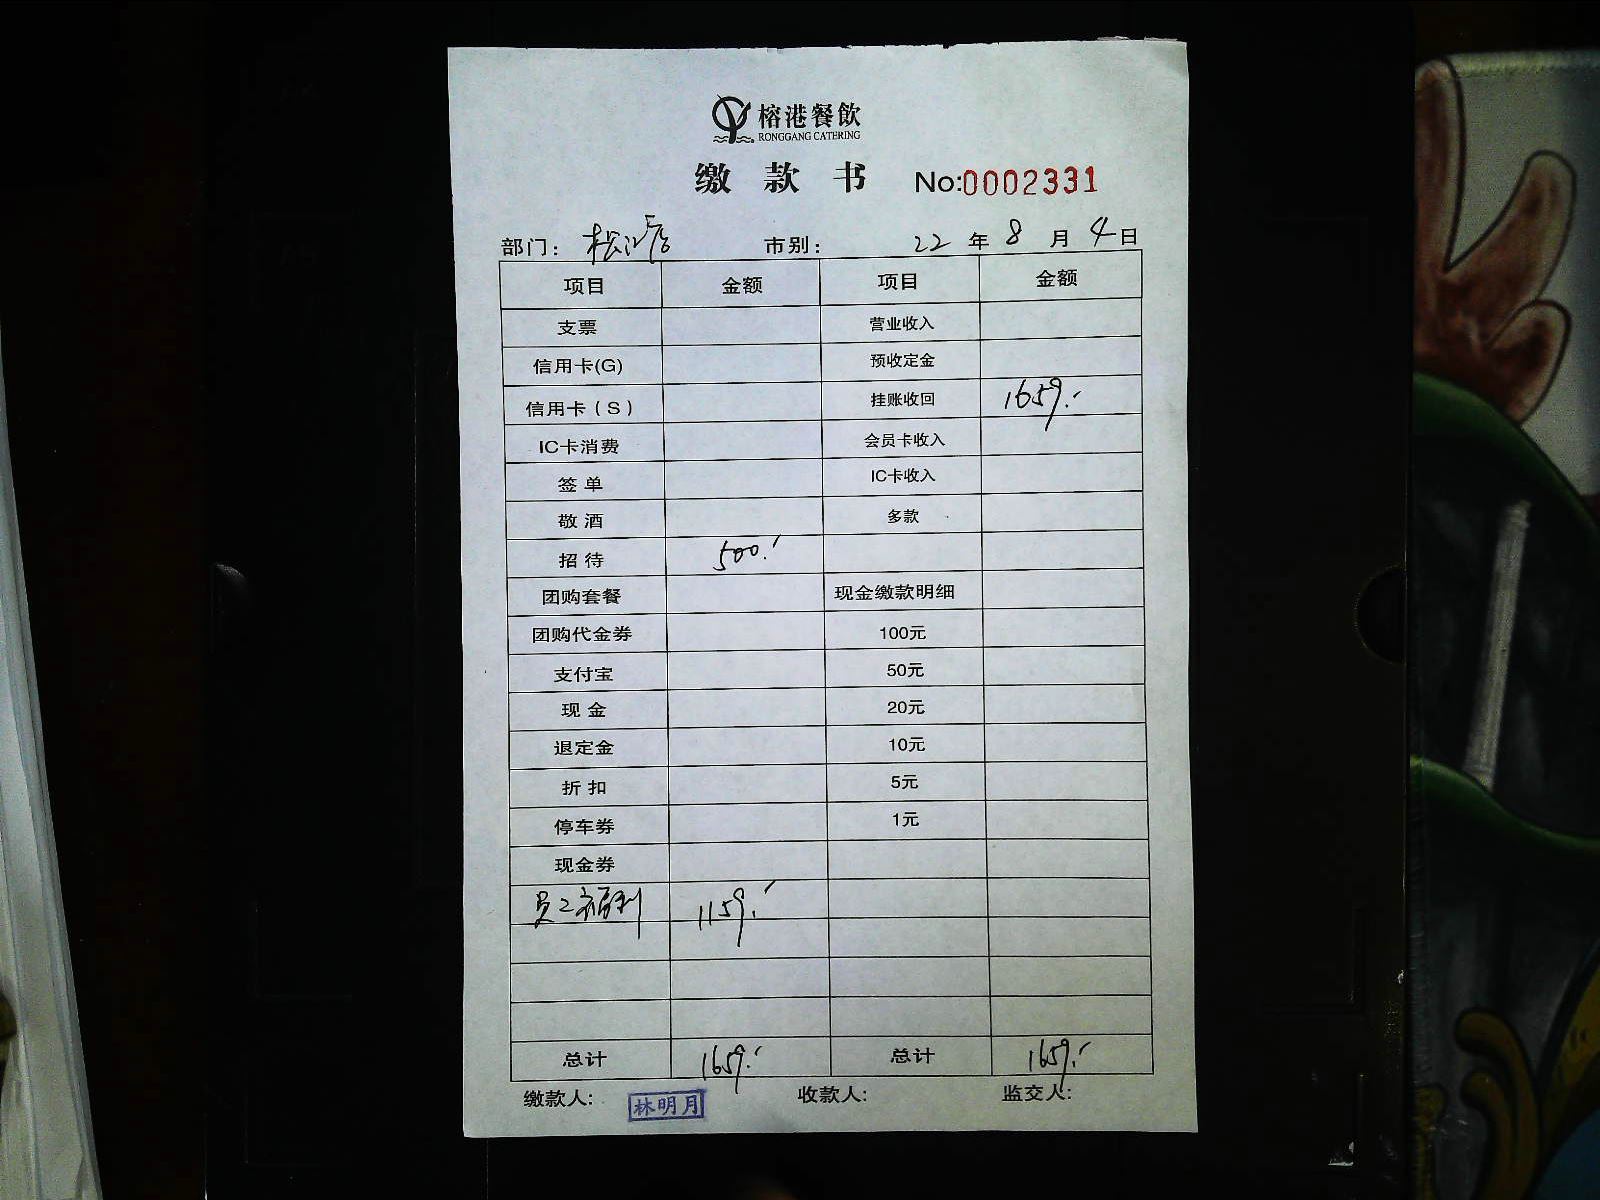 榕港餐飲
RONGGANG CATERING
缴款书 No:0002331
部门: 松江店 市别: 22 年 8 月 4 日
项目 金额 项目 金额
支票 营业收入
信用卡(G) 预收定金
信用卡(S) 挂账收回 1659.-
IC卡消费 会员卡收入
签单 IC卡收入
敬酒 多款
招待 500.-
团购套餐 现金缴款明细
团购代金券 100元
支付宝 50元
现金 20元
退定金 10元
折扣 5元
停车券 1元
现金券
员工福利 1159.-
总计 1659.- 总计 1659.-
缴款人: 林明月 收款人: 监交人: